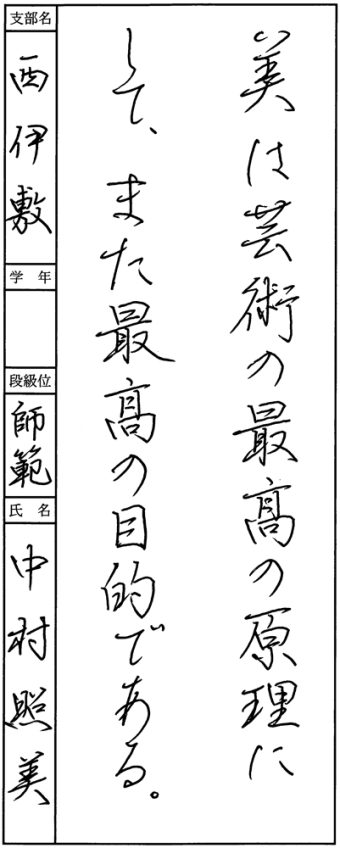 美は芸術の最高の原理に
して、また最高の目的である。
支部名
西伊敷
学年
段級位
師範
氏名
中村照美